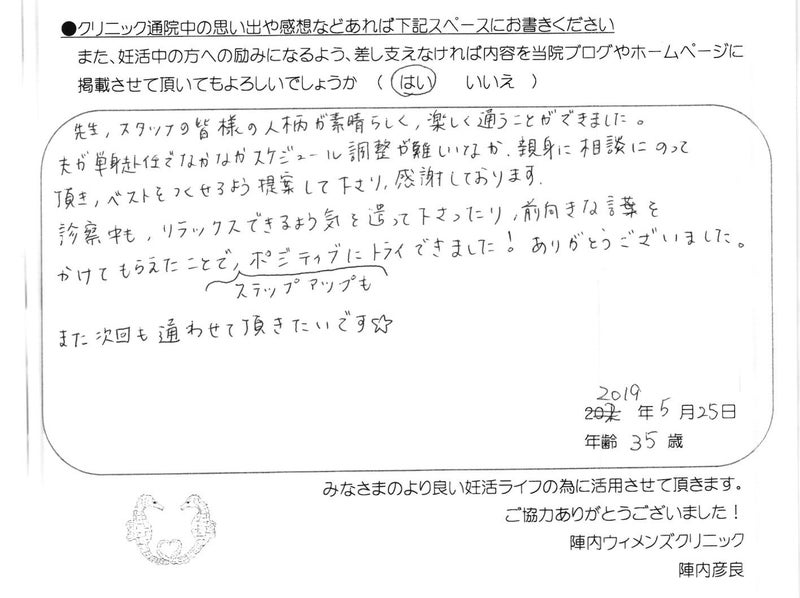 ●クリニック通院中の思い出や感想などあれば下記スペースにお書きください
また、妊活中の方への励みになるよう、差し支えなければ内容を当院ブログやホームページに
掲載させて頂いてもよろしいでしょうか （ はい いいえ ）
先生，スタッフの皆様の人柄が素晴らしく，楽しく通うことができました。
夫が単身赴任でなかなかスケジュール調整が難しいなか、親身に相談にのって
頂き，ベストをつくせるよう提案して下さり，感謝しております．
診察中も，リラックスできるよう気を遣って下さったり，前向きな言葉を
かけてもらえたことで，ポジティブにトライできました！ ありがとうございました。
ステップアップも
また次回も通わせて頂きたいです☆
2019
年5月25日
年齢 35 歳
みなさまのより良い妊活ライフの為に活用させて頂きます。
ご協力ありがとうございました！
陣内ウィメンズクリニック
陣内彦良